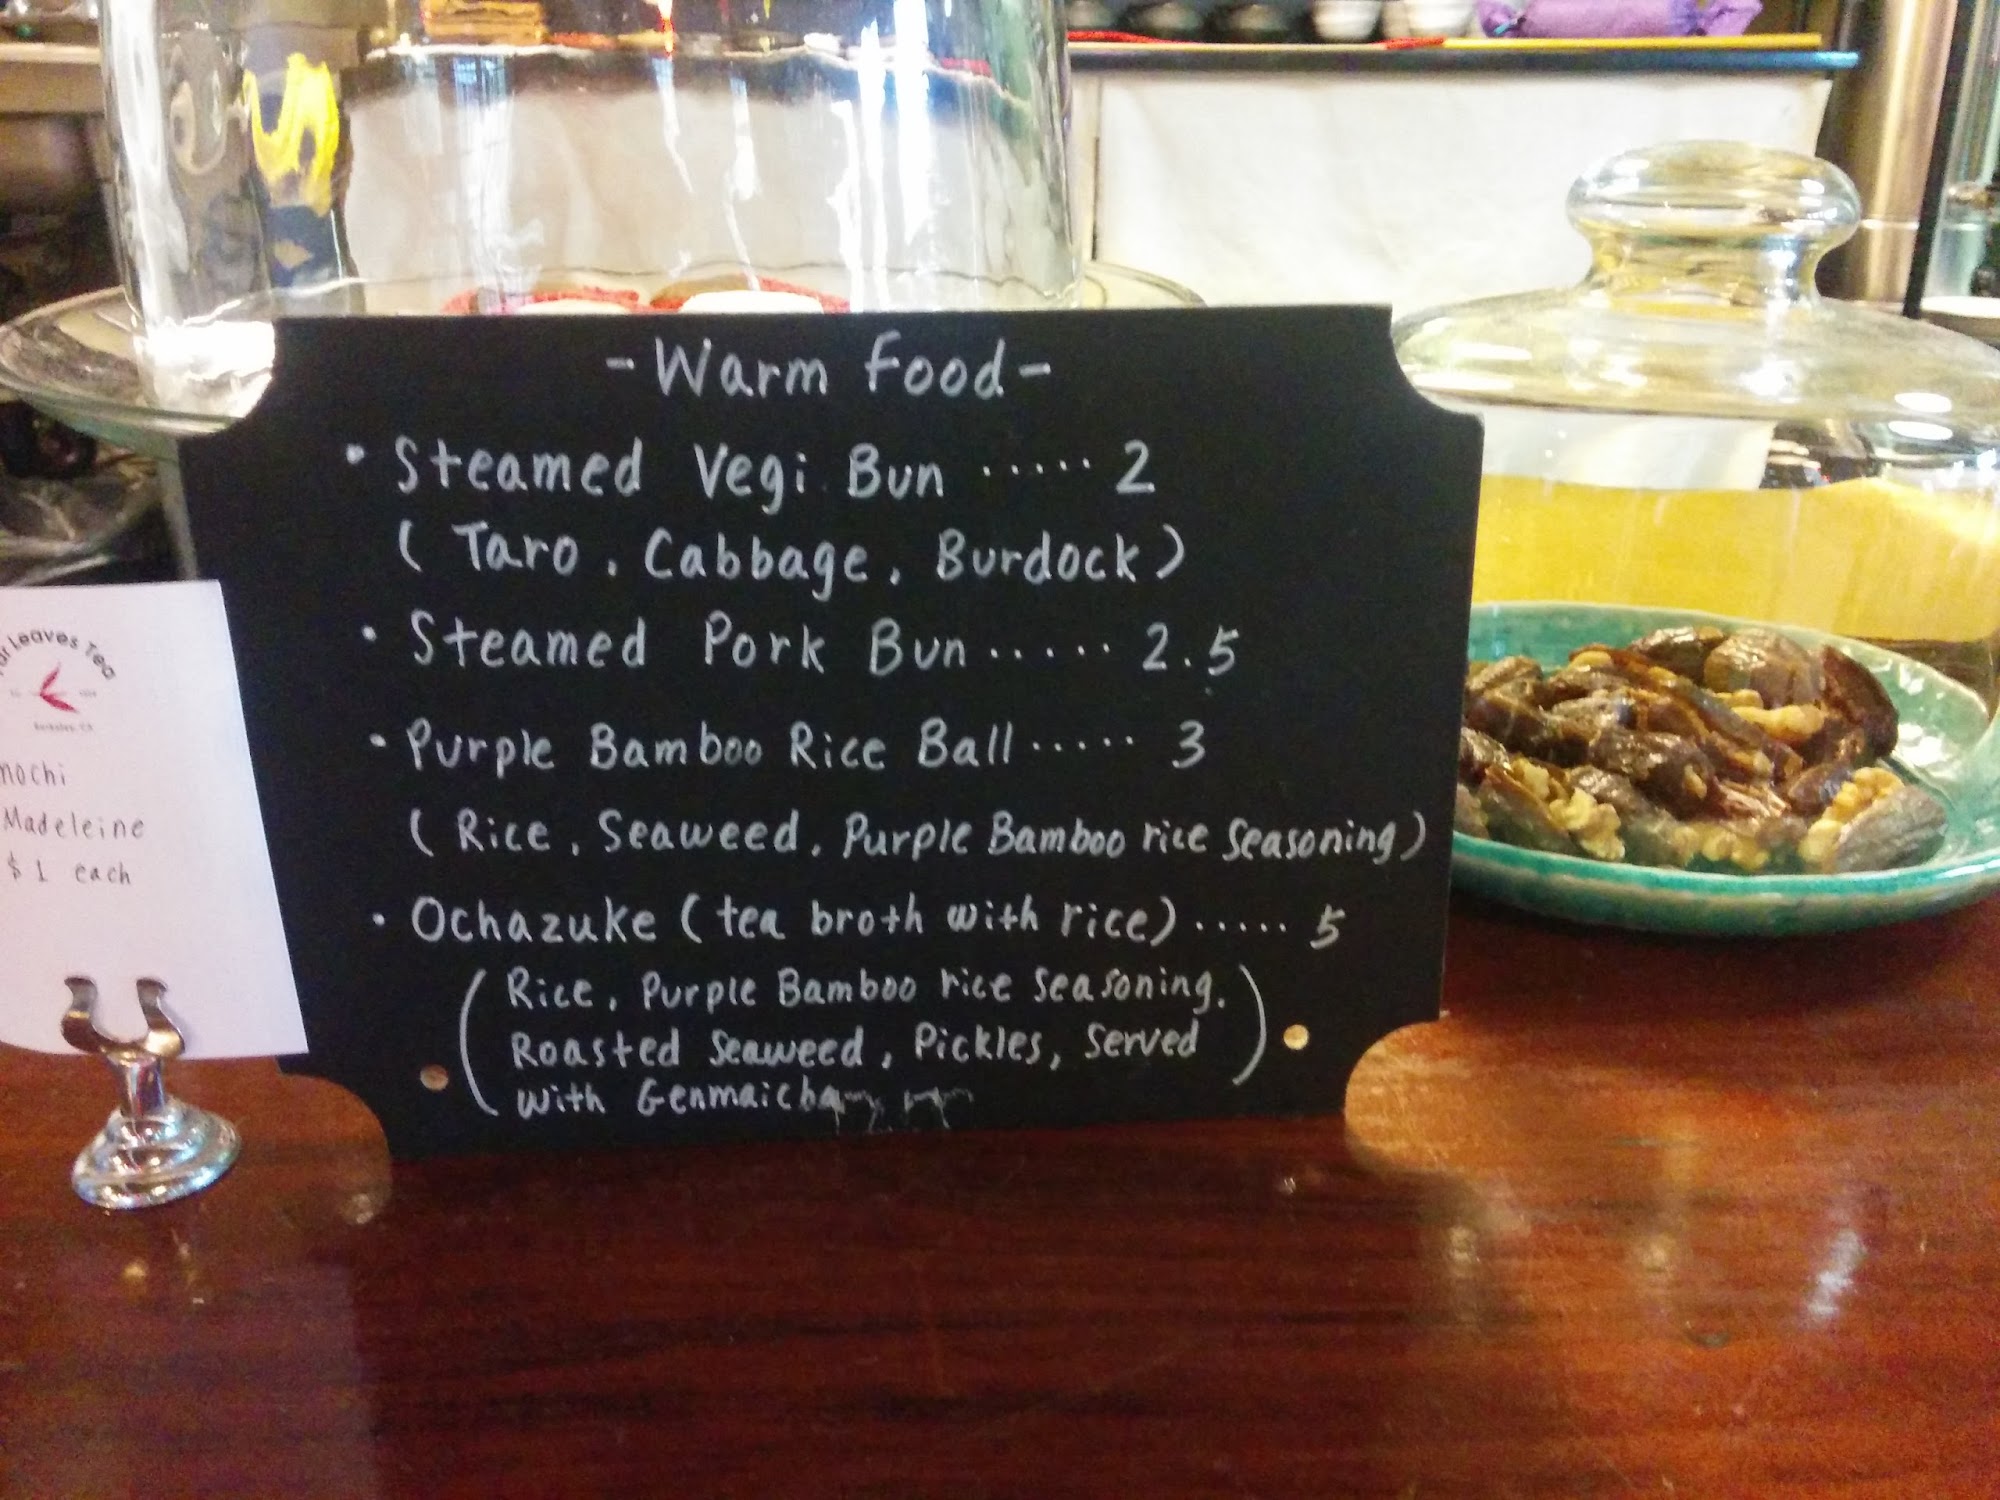 - Warm Food -
• Steamed Vegi Bun ..... 2
( Taro, Cabbage, Burdock )
• Steamed Pork Bun ..... 2.5
• Purple Bamboo Rice Ball ..... 3
( Rice, Seaweed, Purple Bamboo rice seasoning )
• Ochazuke ( tea broth with rice ) ..... 5
( Rice, Purple Bamboo rice seasoning.
Roasted seaweed, Pickles, served
with Genmaicha )
Leaves Tea
Berkeley, CA
mochi
Madeleine
$ 1 each